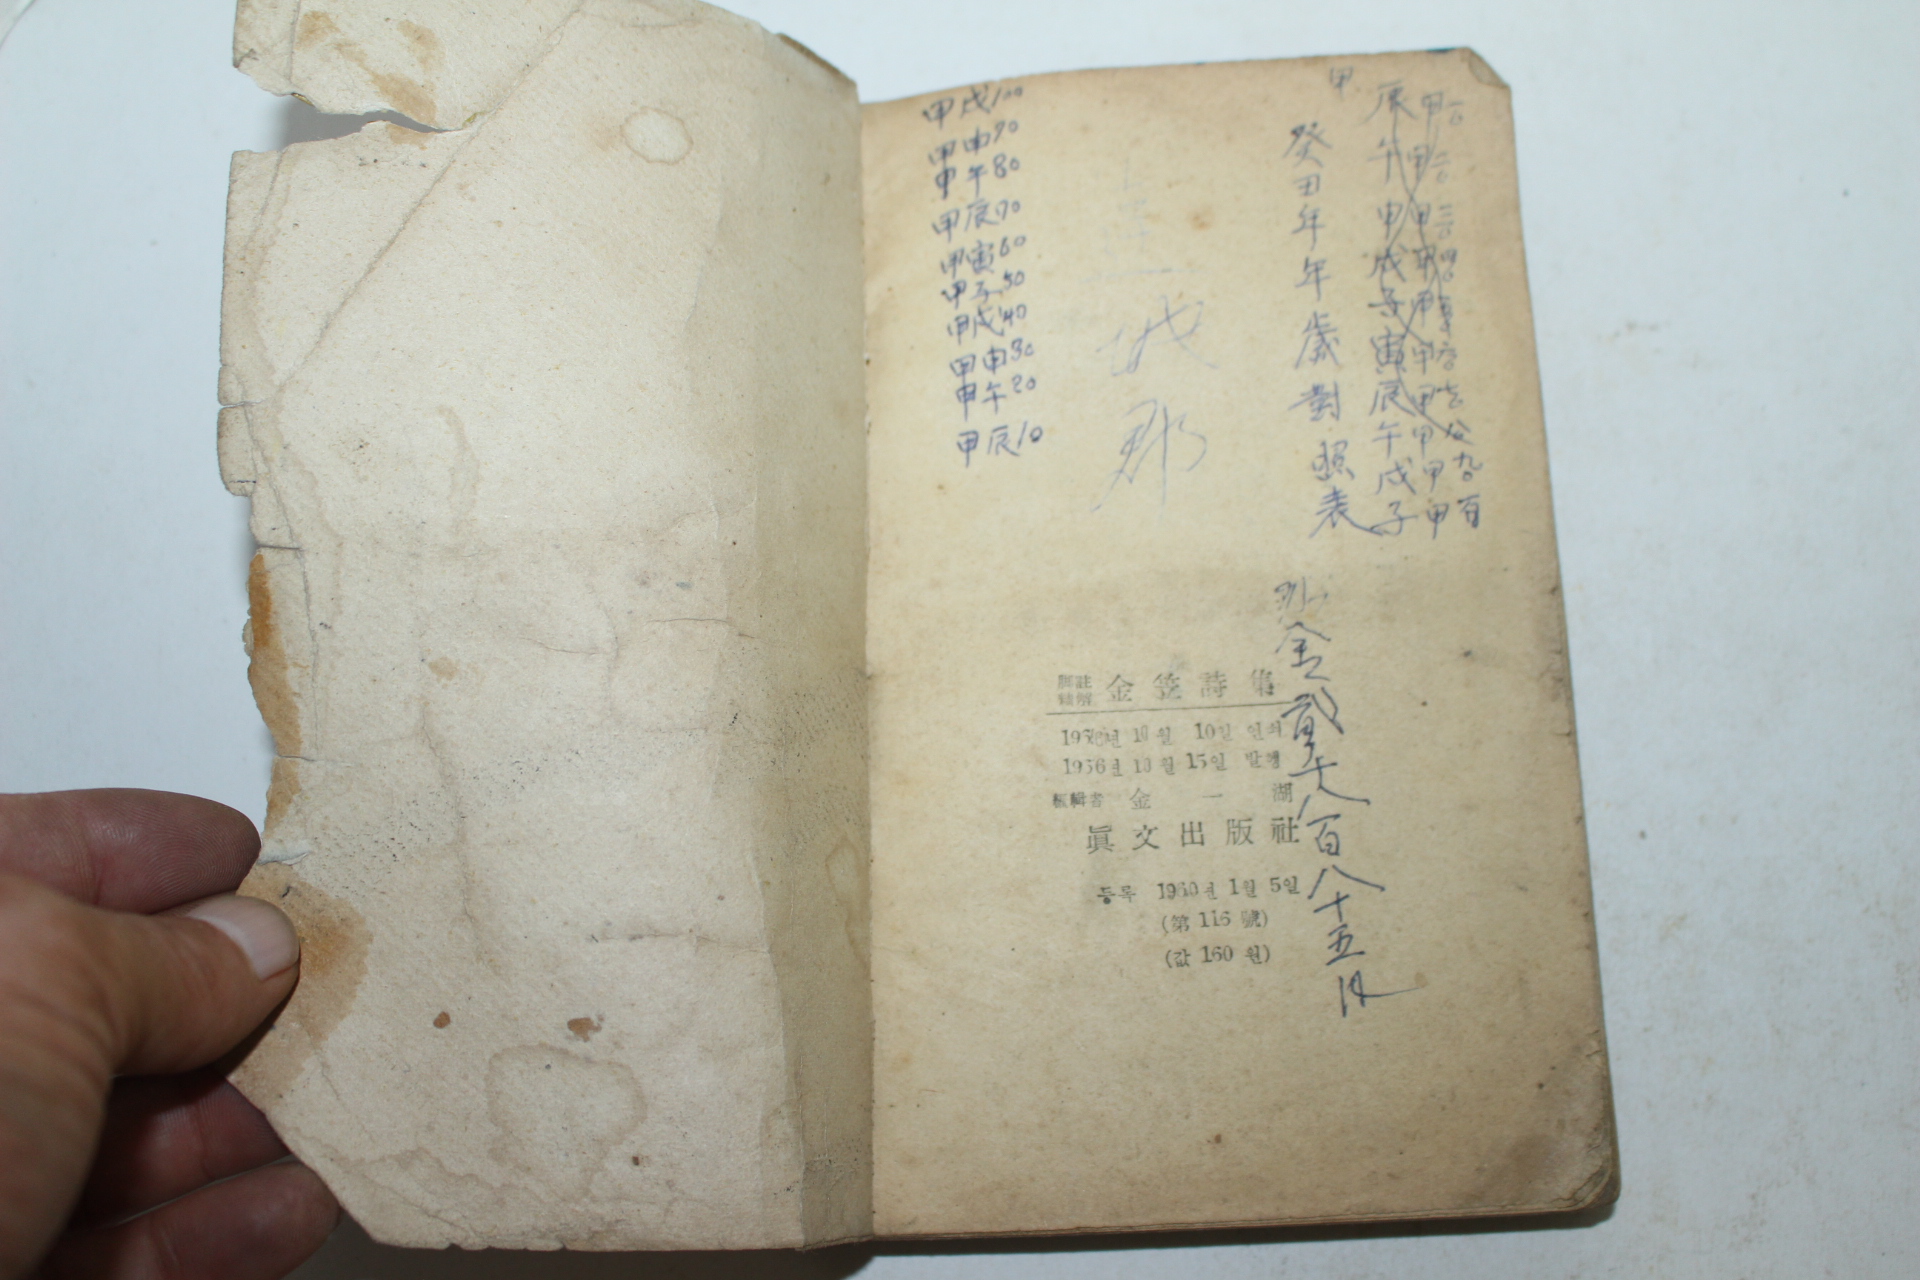 甲戌100
甲申90
甲午80
甲辰70
甲寅60
甲子50
甲戌40
甲申30
甲午20
甲辰10
城
郡
甲
癸丑年年歲對照表
辰午申戌子寅辰午戌子
金貳千八百八十五
脚註
精解 金笠詩集
10월 10일 인쇄
1956년 10월 15일 발행
編輯者 金一湖
眞文出版社
등록 1960년 1월 5일
(第 116 號)
(값 160 원)